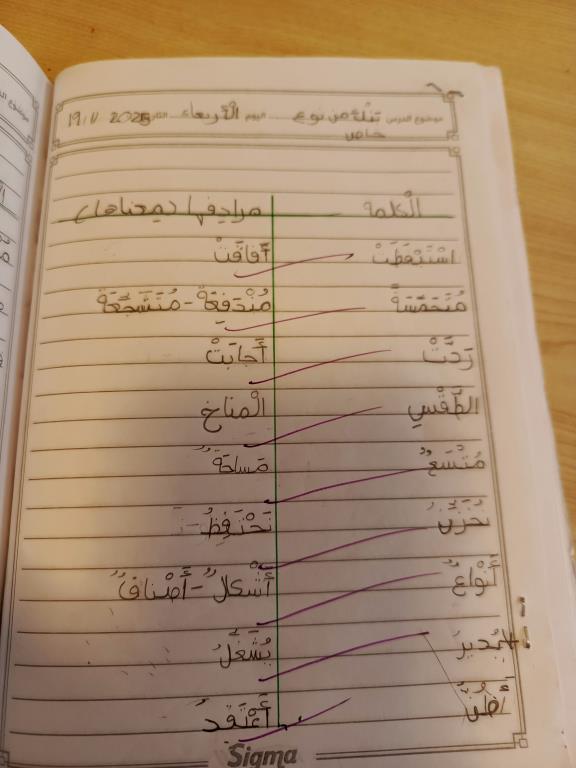 موضوع الدرس تنلة من نوع خاص اليوم الأربعاء التاريخ 2025 19/7
الْكلمة مرادفها (معناها)
اسْتَيْقَظَتْ أَفاقَتْ
مُتَحَمِّسَةً مُنْدَفِعَة - مُتَشَجِّعَة
رَدَّتْ أَجابَتْ
الطَّقْسِ الْمناخ
مُتَّسَعٌ مَساحَةٌ
نُخَزِّنُ نَحْتَفِظُ
أَنْواعٌ أَشْكالٌ - أَصْنافٌ
يُديرُ يُشَغِّلُ
أَظُنُّ أَعْتَقِدُ
Sigma